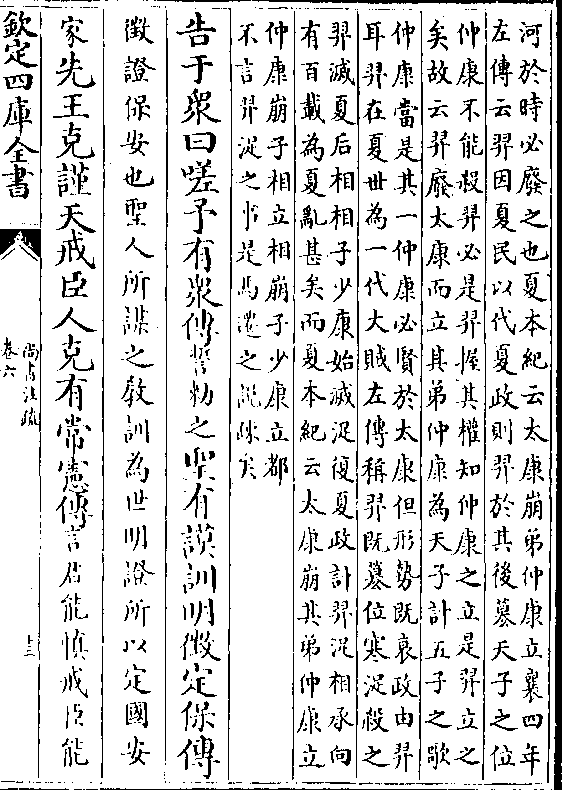 河於時必廢之也夏本紀云太康崩弟仲康立襄四年
左傳云羿因夏民以代夏政則羿於其後篡天子之位
仲康不能殺羿必是羿握其權知仲康之立是羿立之
矣故云羿廢太康而立其弟仲康為天子計五子之歌
仲康當是其一仲康必賢於太康但形勢既衰政由羿
耳羿在夏世為一代大賊左傳稱羿既篡位寒浞殺之
羿滅夏后相相子少康始滅浞復夏政計羿浞相承向
有百載為夏亂甚矣而夏本紀云太康崩其弟仲康立
仲康崩子相立相崩子少康立都
不言羿浞之事是馬遷之説疎矣
告于衆曰嗟予有衆傳誓勑之聖有謨訓明徴定保傳
徴證保安也聖人所謀之教訓為世明證所以定國安
家先王克謹天戒臣人克有常憲傳言君能慎戒臣能
欽定四庫全書
尚書注疏
卷六
十三